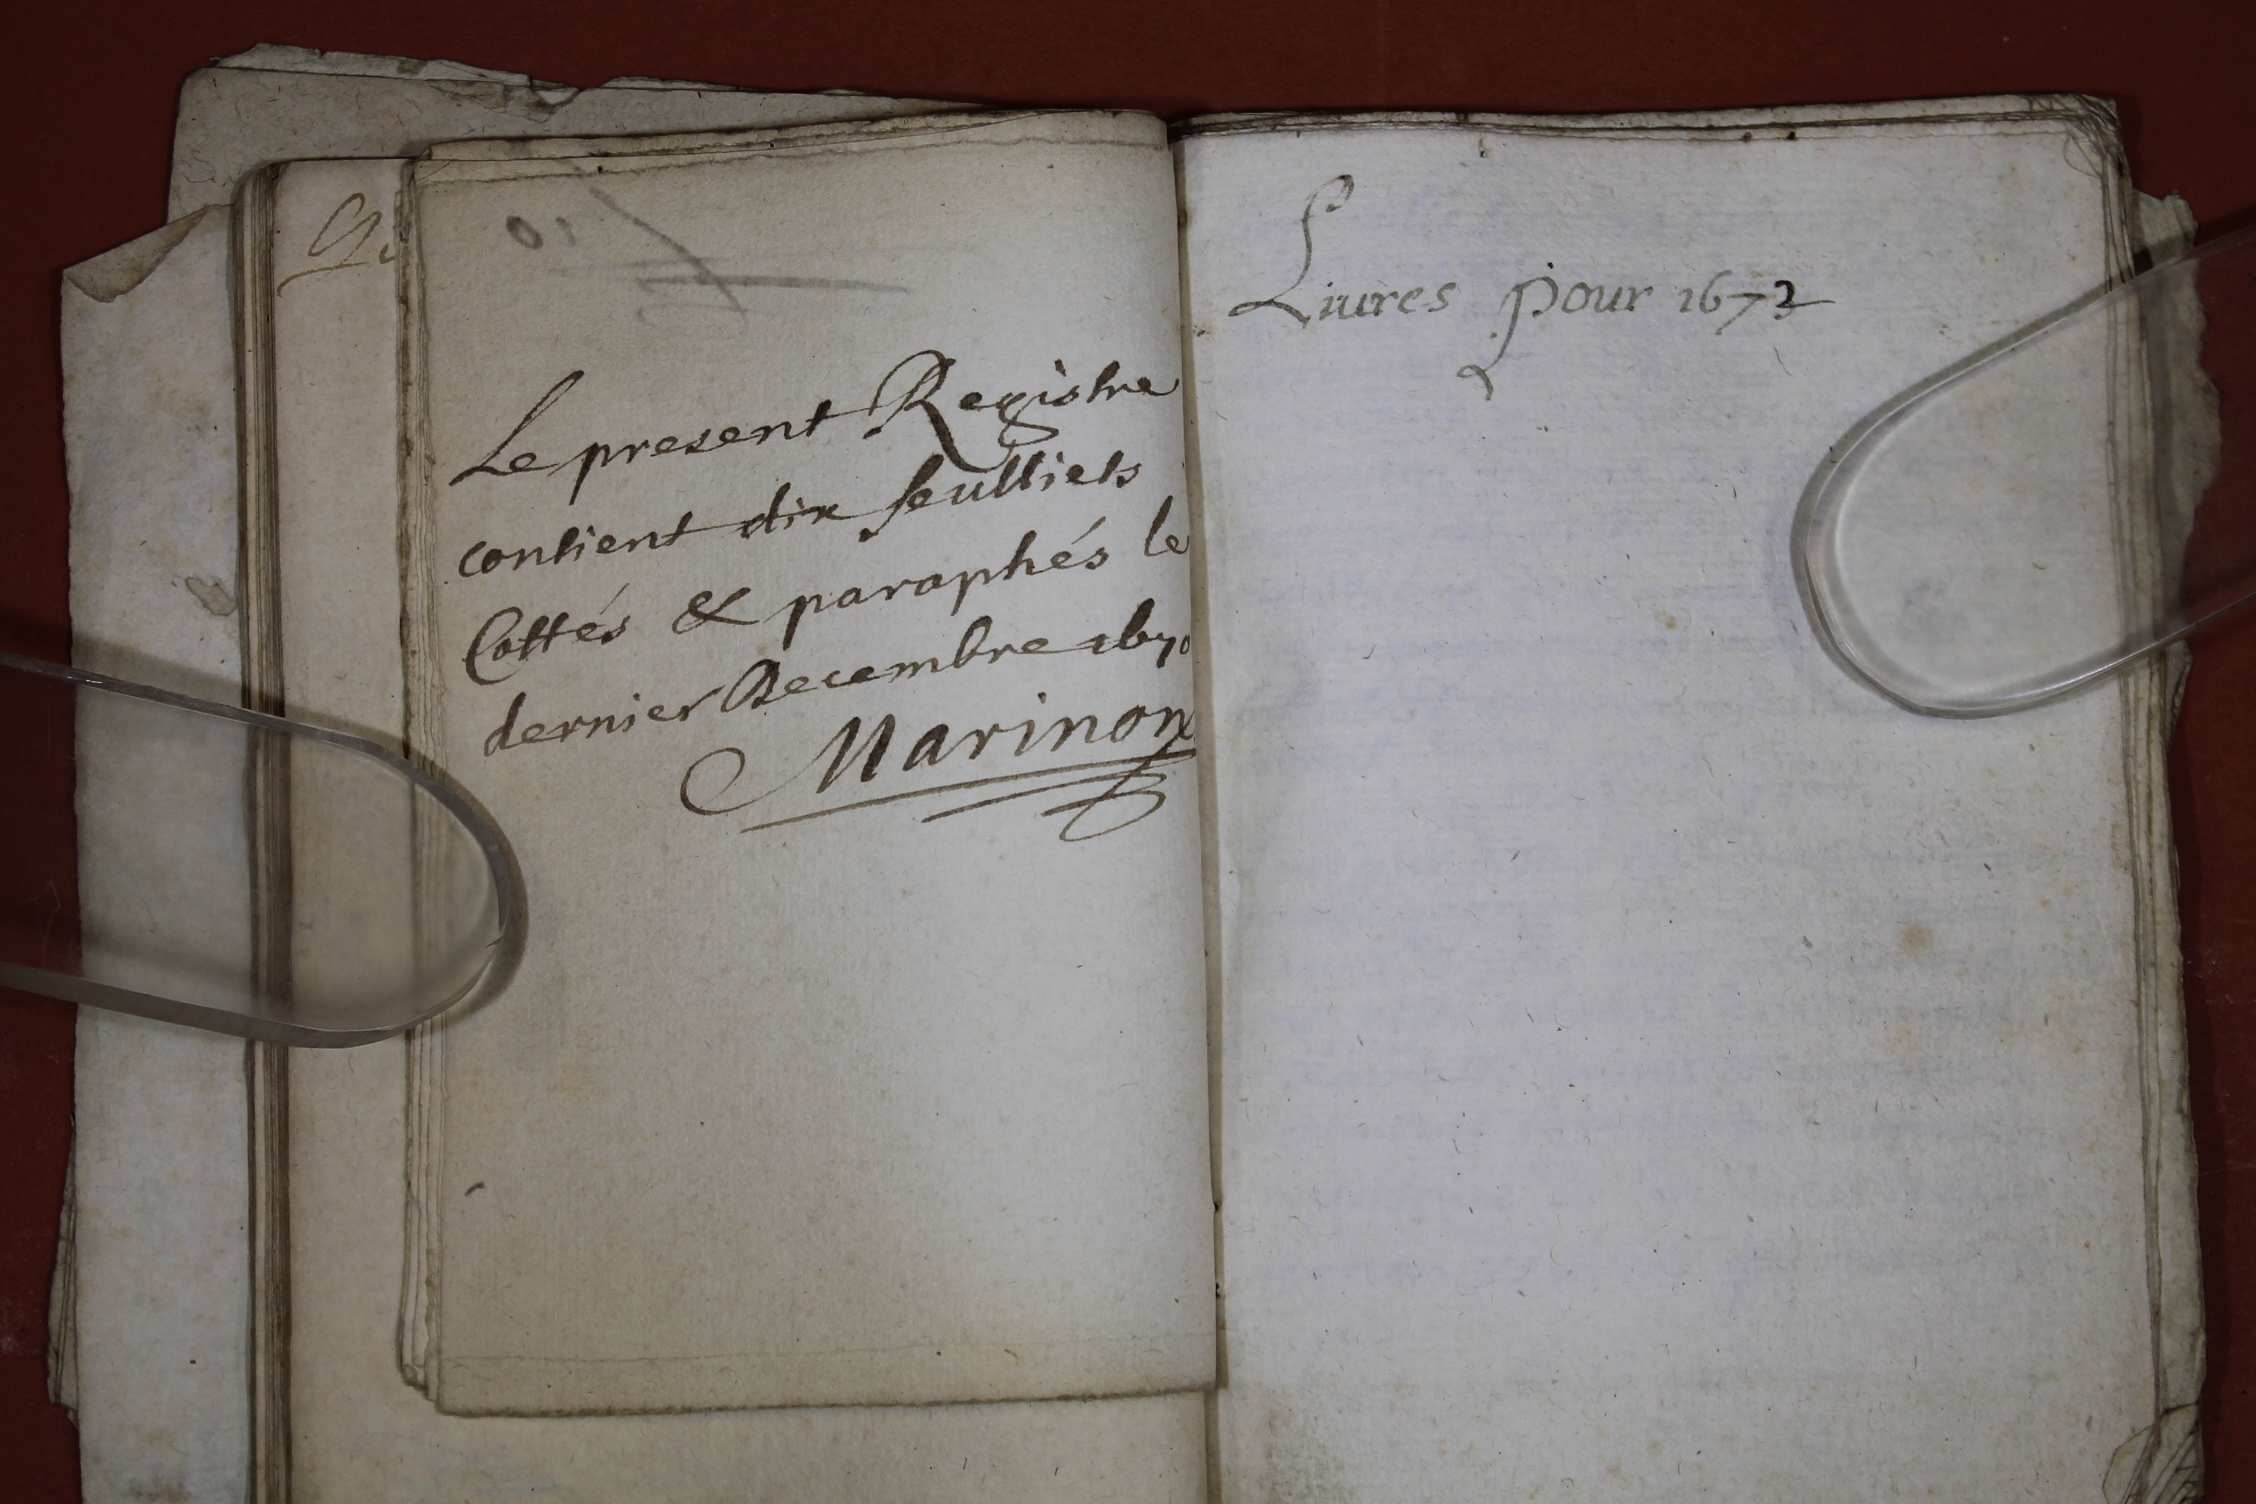 Le present Registre
contient dix feulliets
Cottés & paraphés le
dernier Decembre 1670
Marinon
Liures pour 1673